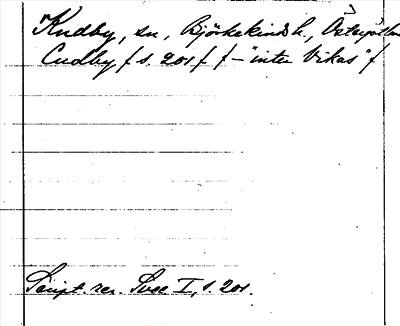 Kudby, sn, Björkekinds h., Östergötlan
Cudby f s. 201 f f - "inter Vikas" f
Script. rer. Svec I, s. 201.